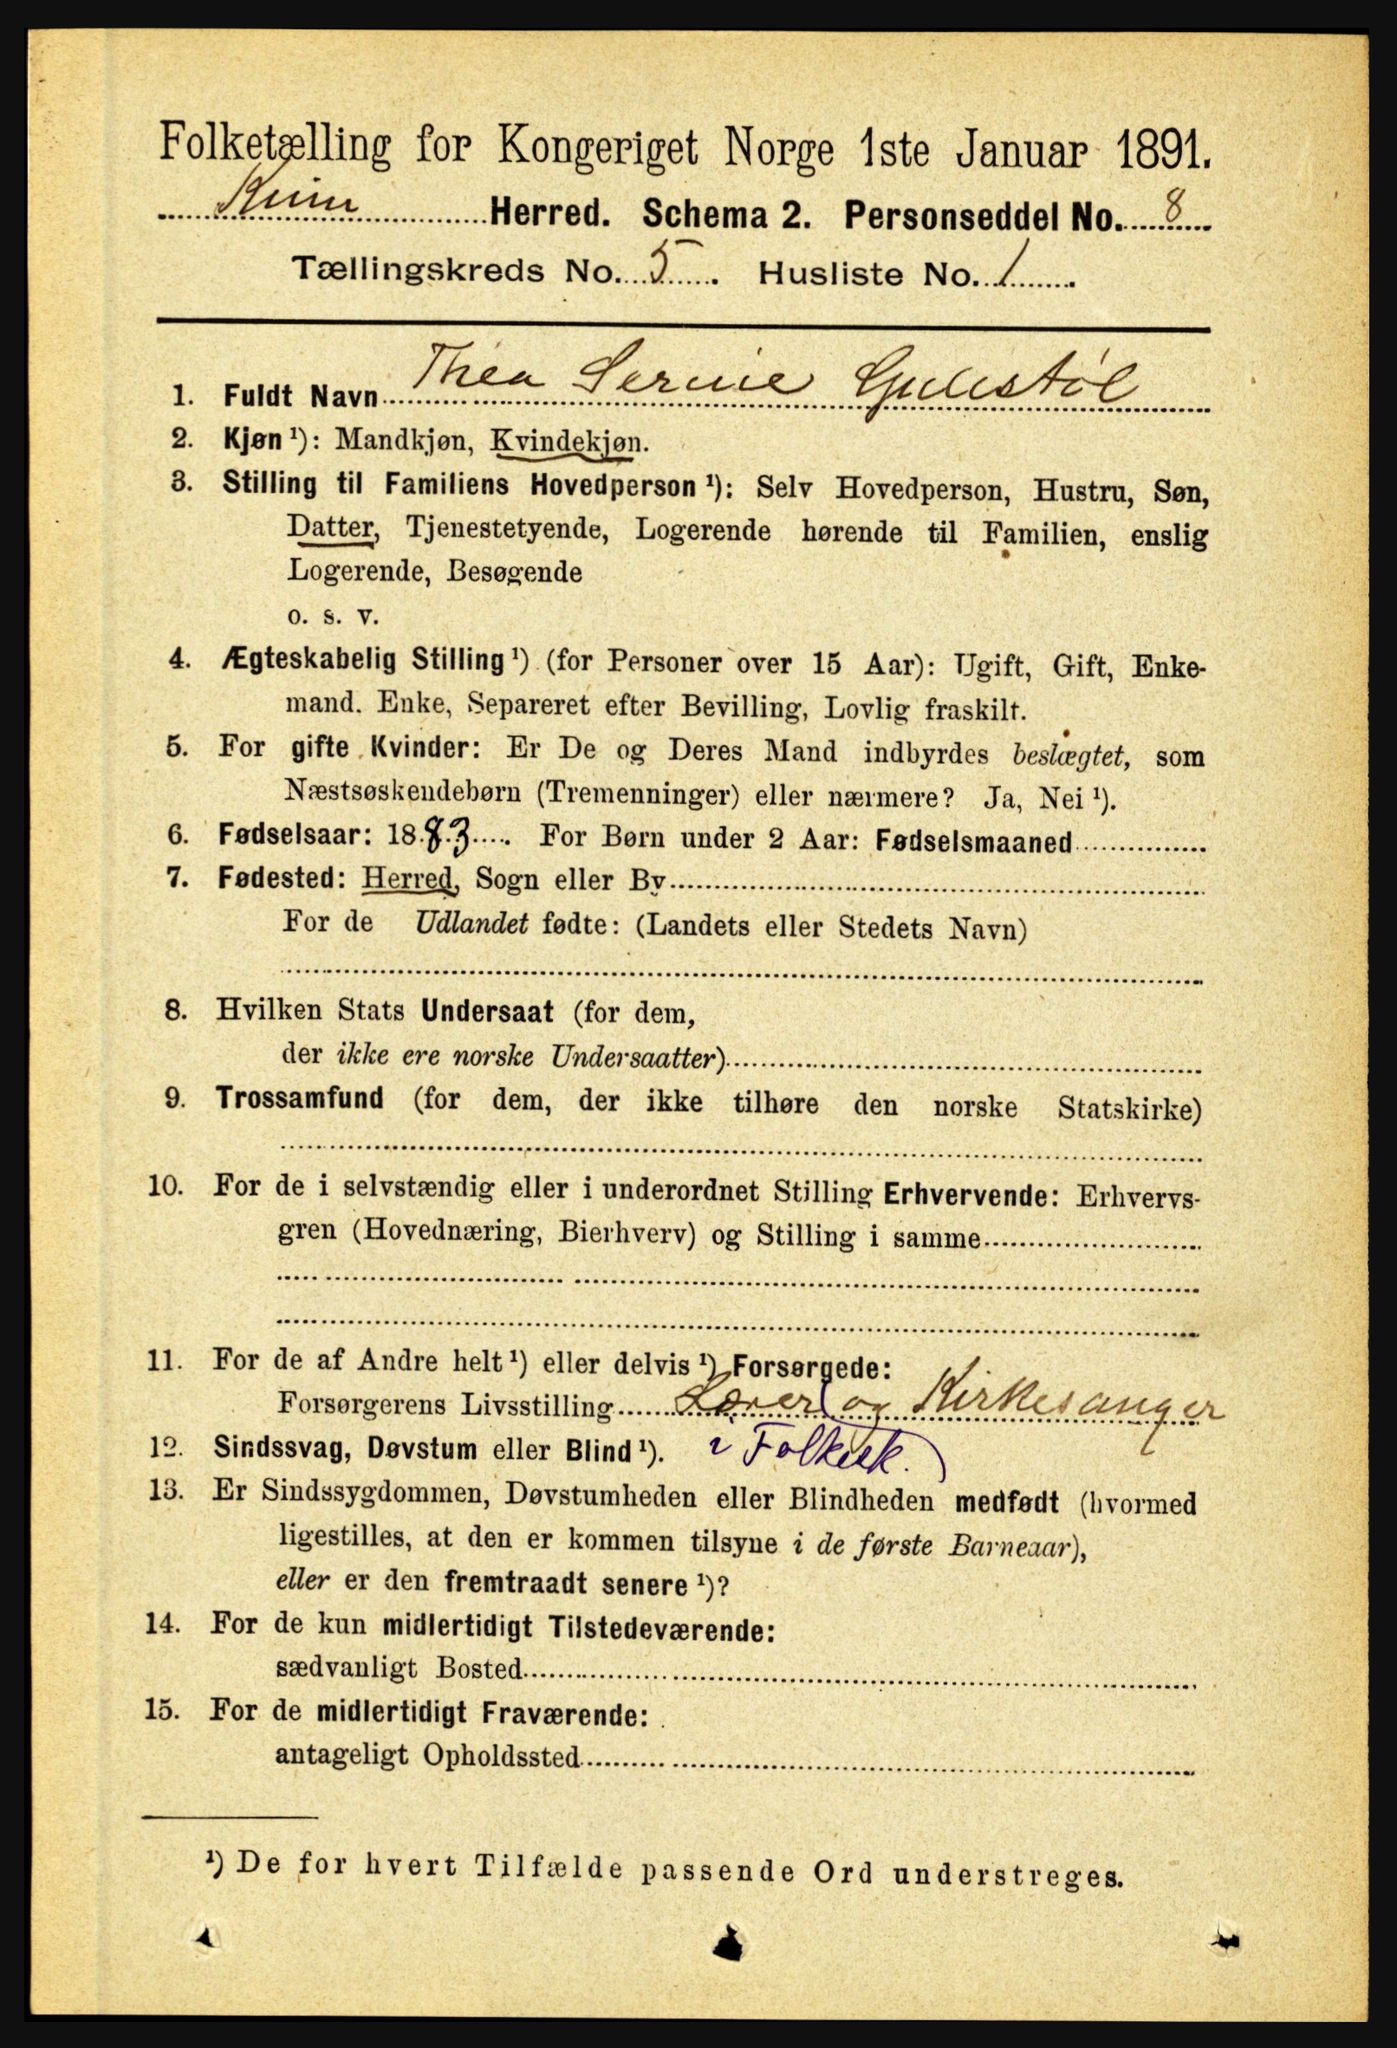 Folketælling for Kongeriget Norge 1ste Januar 1891.
Kinn Herred. Schema 2. Personseddel No. 8
Tællingskreds No. 5. Husliste No. 1.
1. Fuldt Navn Thea Serine Gulestøl
2. Kjøn ¹): Mandkjøn, Kvindekjøn.
3. Stilling til Familiens Hovedperson ¹): Selv Hovedperson, Hustru, Søn,
Datter, Tjenestetyende, Logerende hørende til Familien, enslig
Logerende, Besøgende
o. s. v.
4. Ægteskabelig Stilling ¹) (for Personer over 15 Aar): Ugift, Gift, Enke-
mand. Enke, Separeret efter Bevilling, Lovlig fraskilt.
5. For gifte Kvinder: Er De og Deres Mand indbyrdes beslægtet, som
Næstsøskendebørn (Tremenninger) eller nærmere? Ja, Nei ¹).
6. Fødselsaar: 1883. For Børn under 2 Aar: Fødselsmaaned
7. Fødested: Herred, Sogn eller By
For de Udlandet fødte: (Landets eller Stedets Navn)
8. Hvilken Stats Undersaat (for dem,
der ikke ere norske Undersaatter)
9. Trossamfund (for dem, der ikke tilhøre den norske Statskirke)
10. For de i selvstændig eller i underordnet Stilling Erhvervende: Erhvervs-
gren (Hovednæring, Bierhverv) og Stilling i samme
11. For de af Andre helt ¹) eller delvis ¹) Forsørgede:
Forsørgerens Livsstilling Lærer (og Kirkesanger
12. Sindssvag, Døvstum eller Blind ¹). i Folkesk.)
13. Er Sindssygdommen, Døvstumheden eller Blindheden medfødt (hvormed
ligestilles, at den er kommen tilsyne i de første Barneaar),
eller er den fremtraadt senere ¹)?
14. For de kun midlertidigt Tilstedeværende:
sædvanligt Bosted
15. For de midlertidigt Fraværende:
antageligt Opholdssted
¹) De for hvert Tilfælde passende Ord understreges.